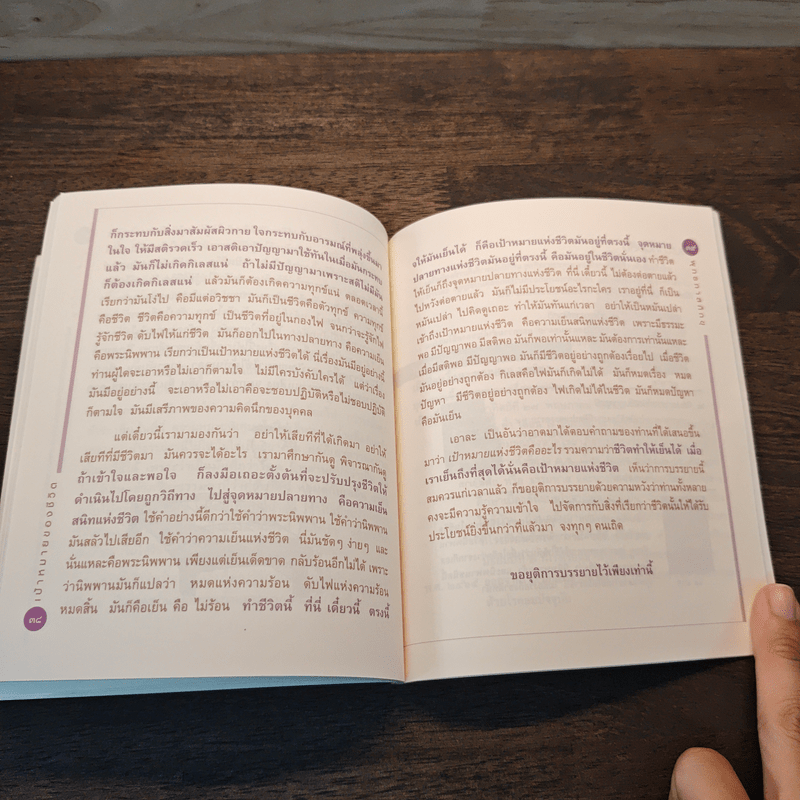 ก็กระทบกับสิ่งมาสัมผัสผิวกาย ใจกระทบกับอารมณ์ที่พลุ่งขึ้นมา
ในใจ ให้มีสติรวดเร็ว เอาสติเอาปัญญามาใช้ทันในเมื่อมันกระทบ
แล้ว มันก็ไม่เกิดกิเลสแน่ ถ้าไม่มีปัญญามาเพราะสติไม่มีมัน
ก็ต้องเกิดกิเลสแน่ แล้วมันก็ต้องเกิดความทุกข์แน่ ตลอดเวลานี้
เรียกว่ามันโง่ไป คือมีแต่อวิชชา มันก็เป็นชีวิตคือตัวทุกข์ ความทุกข์
คือชีวิต ชีวิตคือความทุกข์ เป็นชีวิตที่อยู่ในกองไฟ จนกว่าจะรู้จักไฟ
รู้จักชีวิต ดับไฟให้แก่ชีวิต มันก็ออกไปในทางปลายทาง คือความเย็น
คือพระนิพพาน เรียกว่าเป็นเป้าหมายแห่งชีวิตได้ นี่เรื่องมันมีอยู่อย่างนี้
ท่านผู้ใดจะเอาหรือไม่เอาก็ตามใจ ไม่มีใครบังคับใครได้ แต่ว่าเรื่อง
มันมีอยู่อย่างนี้ จะเอาหรือไม่เอาคือจะชอบปฏิบัติหรือไม่ชอบปฏิบัติ
ก็ตามใจ มันมีเสรีภาพของความคิดนึกของบุคคล
แต่เดี๋ยวนี้เรามามองกันว่า อย่าให้เสียทีที่ได้เกิดมา อย่าให้
เสียทีที่มีชีวิตมา มันควรจะได้อะไร เรามาศึกษากันดู พิจารณากันดู
ถ้าเข้าใจและพอใจ ก็ลงมือเถอะตั้งต้นที่จะปรับปรุงชีวิตให้
ดำเนินไปโดยถูกวิถีทาง ไปสู่จุดหมายปลายทาง คือความเย็น
สนิทแห่งชีวิต ใช้คำอย่างนี้ดีกว่าใช้คำว่าพระนิพพาน ใช้คำว่านิพพาน
มันสลัวไปเสียอีก ใช้คำว่าความเย็นแห่งชีวิต นี่มันชัดๆ ง่ายๆ และ
นั่นแหละคือพระนิพพาน เพียงแต่เย็นเด็ดขาด กลับร้อนอีกไม่ได้ เพราะ
ว่านิพพานมันก็แปลว่า หมดแห่งความร้อน ดับไฟแห่งความร้อน
หมดสิ้น มันก็คือเย็น คือ ไม่ร้อน ทำชีวิตนี้ ที่นี่ เดี๋ยวนี้ ตรงนี้
เป้าหมายของชีวิต
๓๔
จให้มันเย็นได้ ก็คือเป้าหมายแห่งชีวิตมันอยู่ที่ตรงนี้ จุดหมาย
ปลายทางแห่งชีวิตมันอยู่ที่ตรงนี้ คือมันอยู่ในชีวิตนั่นเอง ทำชีวิต
ให้เย็นก็ถึงจุดหมายปลายทางแห่งชีวิต ที่นี่ เดี๋ยวนี้ ไม่ต้องต่อตายแล้ว
ไปหวังต่อตายแล้ว มันก็ไม่มีประโยชน์อะไรกะใคร เราอยู่ที่นี่ ก็เป็น
หมันเปล่า ไปคิดดูเถอะ ทำให้มันทันแก่เวลา อย่าให้เป็นหมันเปล่า
เข้าถึงเป้าหมายแห่งชีวิต คือความเย็นสนิทแห่งชีวิต เพราะมีธรรมะ
พอ มีปัญญาพอ มีสติพอ มันก็พอเท่านั้นแหละ มันต้องการเท่านั้นแหละ
เมื่อมีสติพอ มีปัญญาพอ มันก็มีชีวิตอยู่อย่างถูกต้องเรื่อยไป เมื่อชีวิต
มันอยู่อย่างถูกต้อง กิเลสคือไฟมันก็เกิดไม่ได้ มันก็หมดเรื่อง หมด
ปัญหา มีชีวิตอยู่อย่างถูกต้อง ไฟเกิดไม่ได้ในชีวิต มันก็หมดปัญหา
คือมันเย็น
เอาละ เป็นอันว่าอาตมาได้ตอบคำถามของท่านที่ได้เสนอขึ้น
มาว่า เป้าหมายแห่งชีวิตคืออะไร รวมความว่าชีวิตทำให้เย็นได้ เมื่อ
เราเย็นถึงที่สุดได้นั่นคือเป้าหมายแห่งชีวิต เห็นว่าการบรรยายนี้
สมควรแก่เวลาแล้ว ก็ขอยุติการบรรยายด้วยความหวังว่าท่านทั้งหลาย
คงจะมีความรู้ความเข้าใจ ไปจัดการกับสิ่งที่เรียกว่าชีวิตนั้นให้ได้รับ
ประโยชน์ยิ่งขึ้นกว่าที่แล้วมา จงทุกๆ คนเถิด
ขอยุติการบรรยายไว้เพียงเท่านี้
๓๕
พุทธทาสภิกขุ